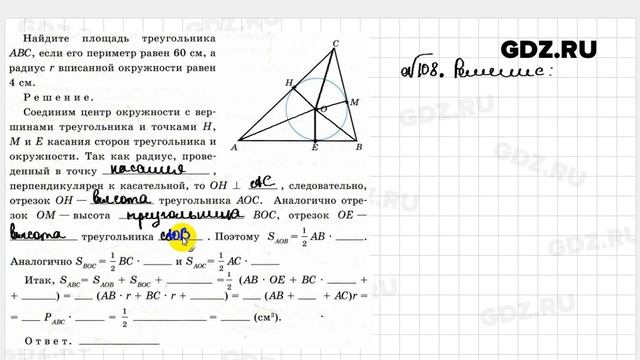 Найдите площадь треугольника
ABC, если его периметр равен 60 см, а
радиус r вписанной окружности равен
4 см.
Решение.
Соединим центр окружности с вер-
шинами треугольника и точками H,
M и E касания сторон треугольника и
окружности. Так как радиус, прове-
денный в точку касания,
перпендикулярен к касательной, то OH ⊥ AC, следовательно,
отрезок OH — высота треугольника AOC. Аналогично отре-
зок OM — высота треугольника BOC, отрезок OE —
высота треугольника AOB. Поэтому S_AOB = 1/2 AB · _____.
Аналогично S_BOC = 1/2 BC · _____ и S_AOC = 1/2 AC · _____
Итак, S_ABC = S_AOB + S_BOC + _____ = 1/2 (AB · OE + BC · _____ +
+ _____) = ___ (AB · r + BC · r + _____) = ___ (AB + ___ + AC)r =
= ___ P_ABC · _____ = 1/2 _____ = _____ (см²).
Ответ. _____
C
H
M
O
A
E
B
№108. Решение:
GDZ.RU
GDZ.RU
GDZ.RU
GDZ.RU
GDZ.RU